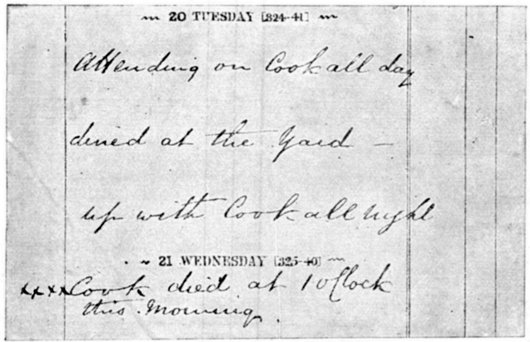 20 TUESDAY [324-41]
Attending on Cook all day
dined at the Yard —
up with Cook all night
21 WEDNESDAY [325-40]
xxxx Cook died at 1 oClock
this Morning.